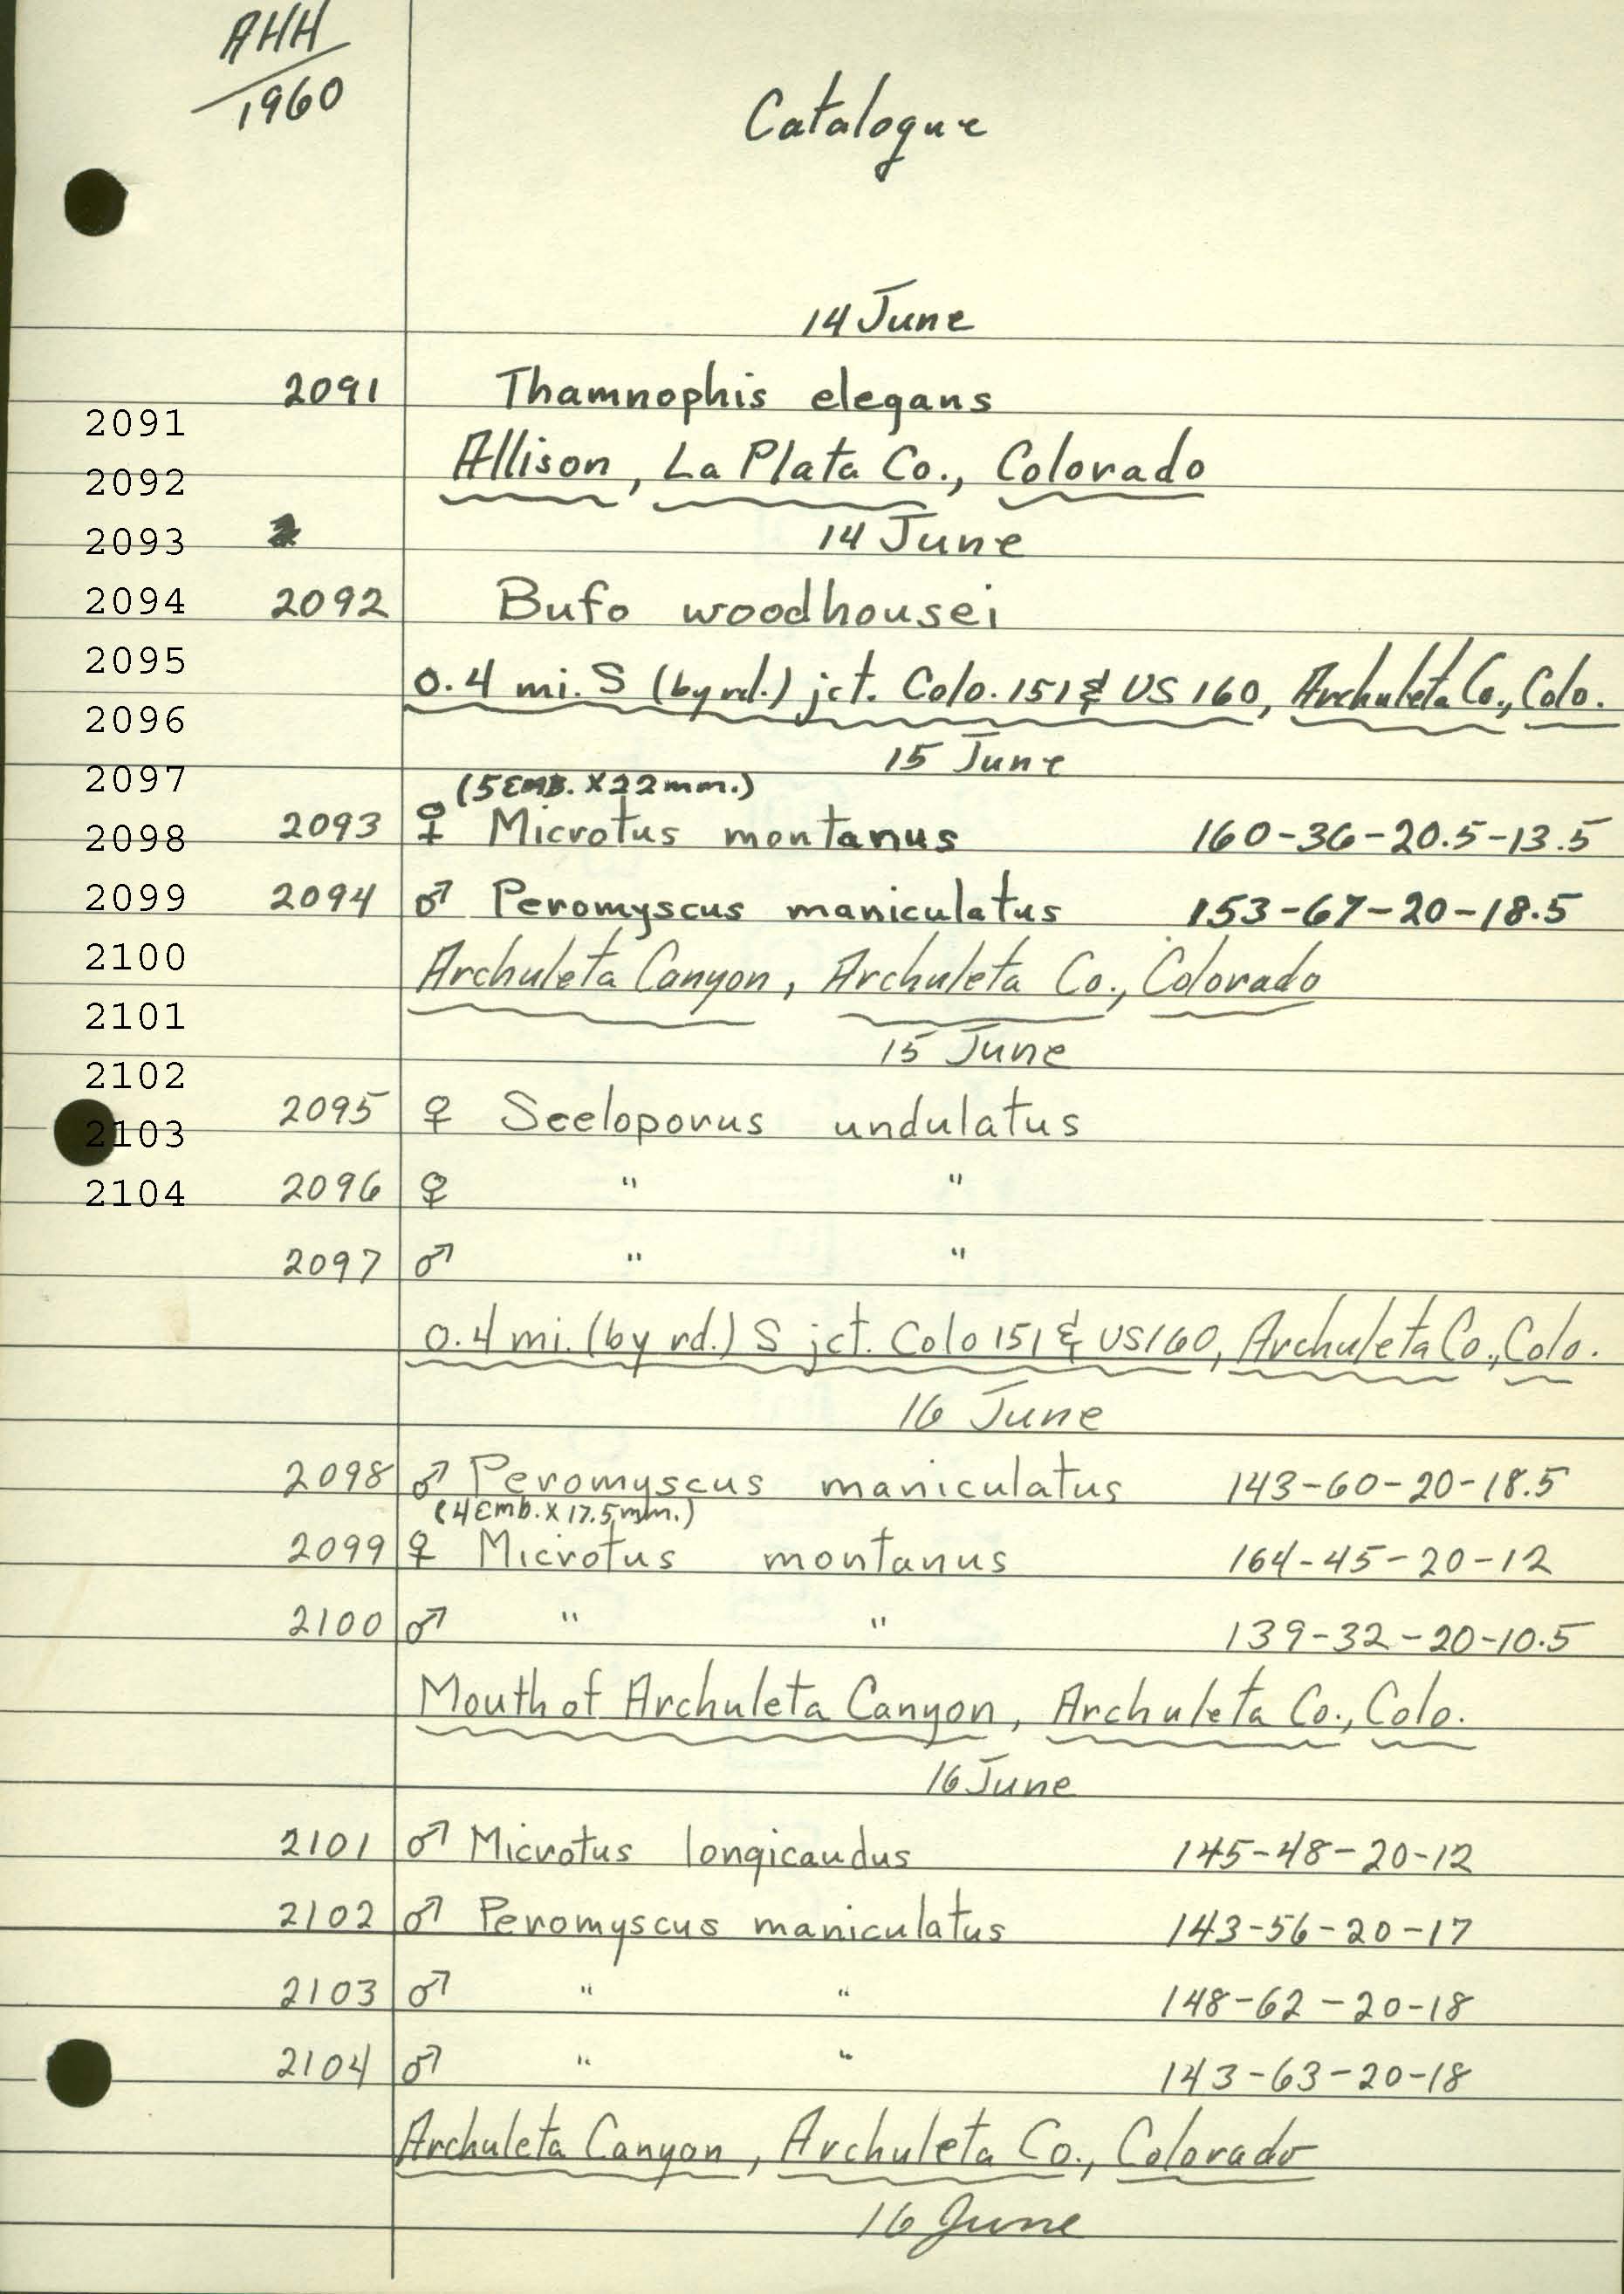 AHH
1960
Catalogue
14 June
2091 Thamnophis elegans
2091
Allison, La Plata Co., Colorado
2092
14 June
2093
2092 Bufo woodhousei
2094
2095
0.4 mi. S (by rd.) jct. Colo. 151 & US 160, Archuleta Co., Colo.
2096
15 June
2097
(5 EMB. X 22 mm.)
2093 ♀ Microtus montanus 160-36-20.5-13.5
2098
2099
2094 ♂ Peromyscus maniculatus 153-67-20-18.5
2100
Archuleta Canyon, Archuleta Co., Colorado
2101
15 June
2102
2095 ♀ Sceloporus undulatus
2103
2096 ♀ " "
2104
2097 ♂ " "
0.4 mi. (by rd.) S jct. Colo 151 & US 160, Archuleta Co., Colo.
16 June
2098 ♂ Peromyscus maniculatus 143-60-20-18.5
(4 Emb. X 17.5 mm.)
2099 ♀ Microtus montanus 164-45-20-12
2100 ♂ " " 139-32-20-10.5
Mouth of Archuleta Canyon, Archuleta Co., Colo.
16 June
2101 ♂ Microtus longicaudus 145-48-20-12
2102 ♂ Peromyscus maniculatus 143-56-20-17
2103 ♂ " " 148-62-20-18
2104 ♂ " " 143-63-20-18
Archuleta Canyon, Archuleta Co., Colorado
16 June